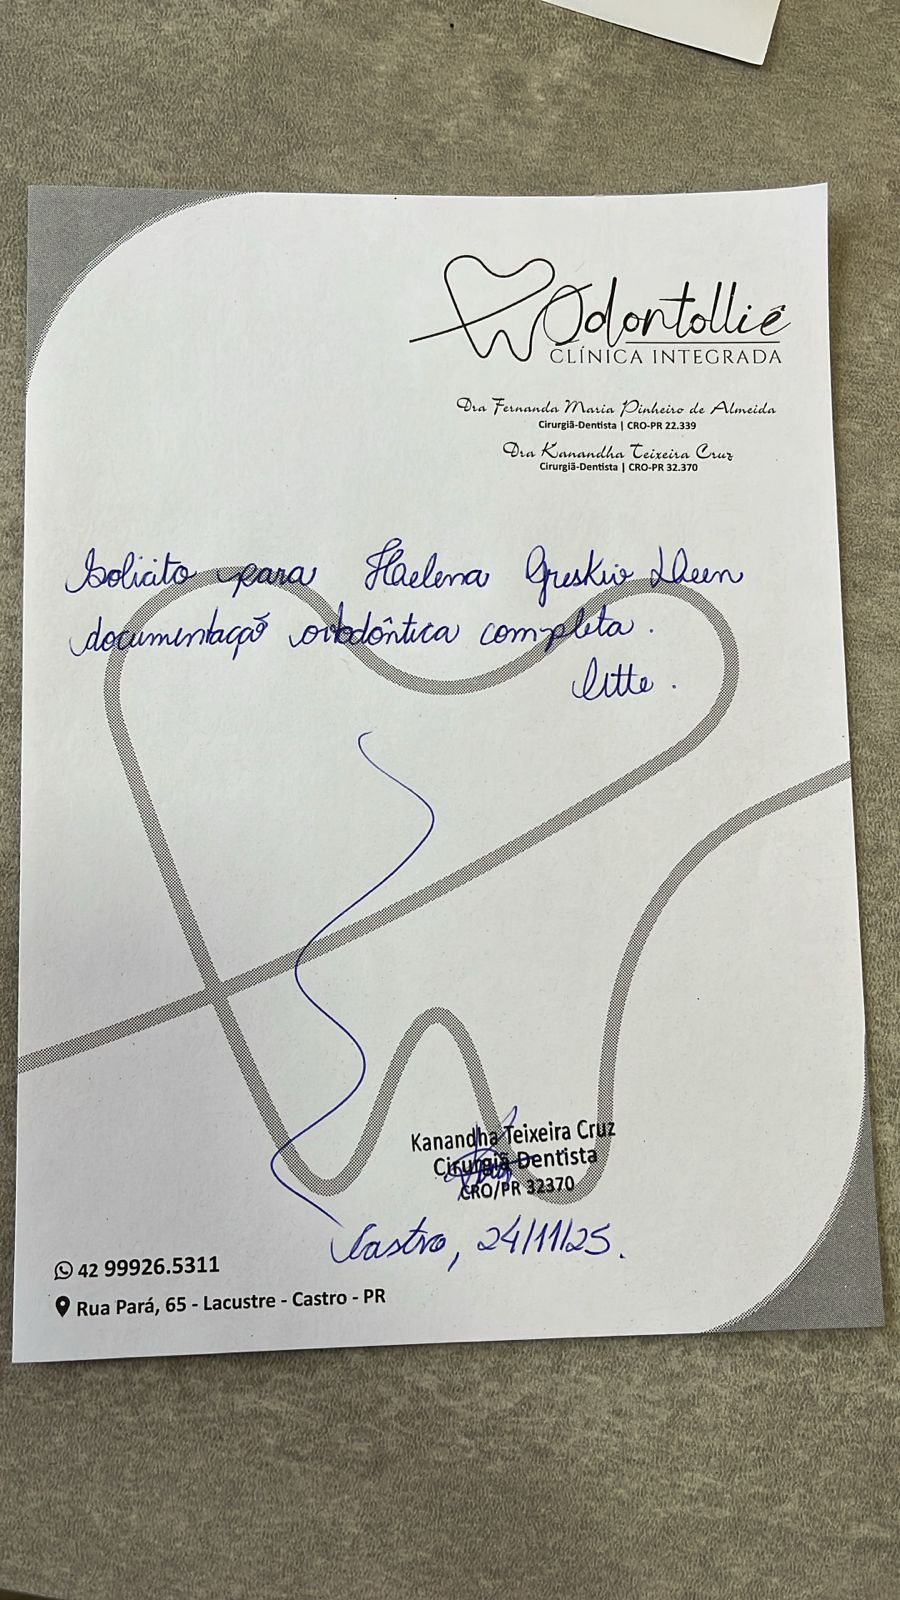 Odontollié
CLÍNICA INTEGRADA
Dra Fernanda Maria Pinheiro de Almeida
Cirurgiã-Dentista | CRO-PR 22.339
Dra Kanandha Teixeira Cruz
Cirurgiã-Dentista | CRO-PR 32.370
Solicito para Haelena
documentação ortodôntica completa.
Kanandha Teixeira Cruz
Cirurgiã-Dentista
CRO/PR 32370
Castro, 24/11/25.
42 99926.5311
Rua Pará, 65 - Lacustre - Castro - PR